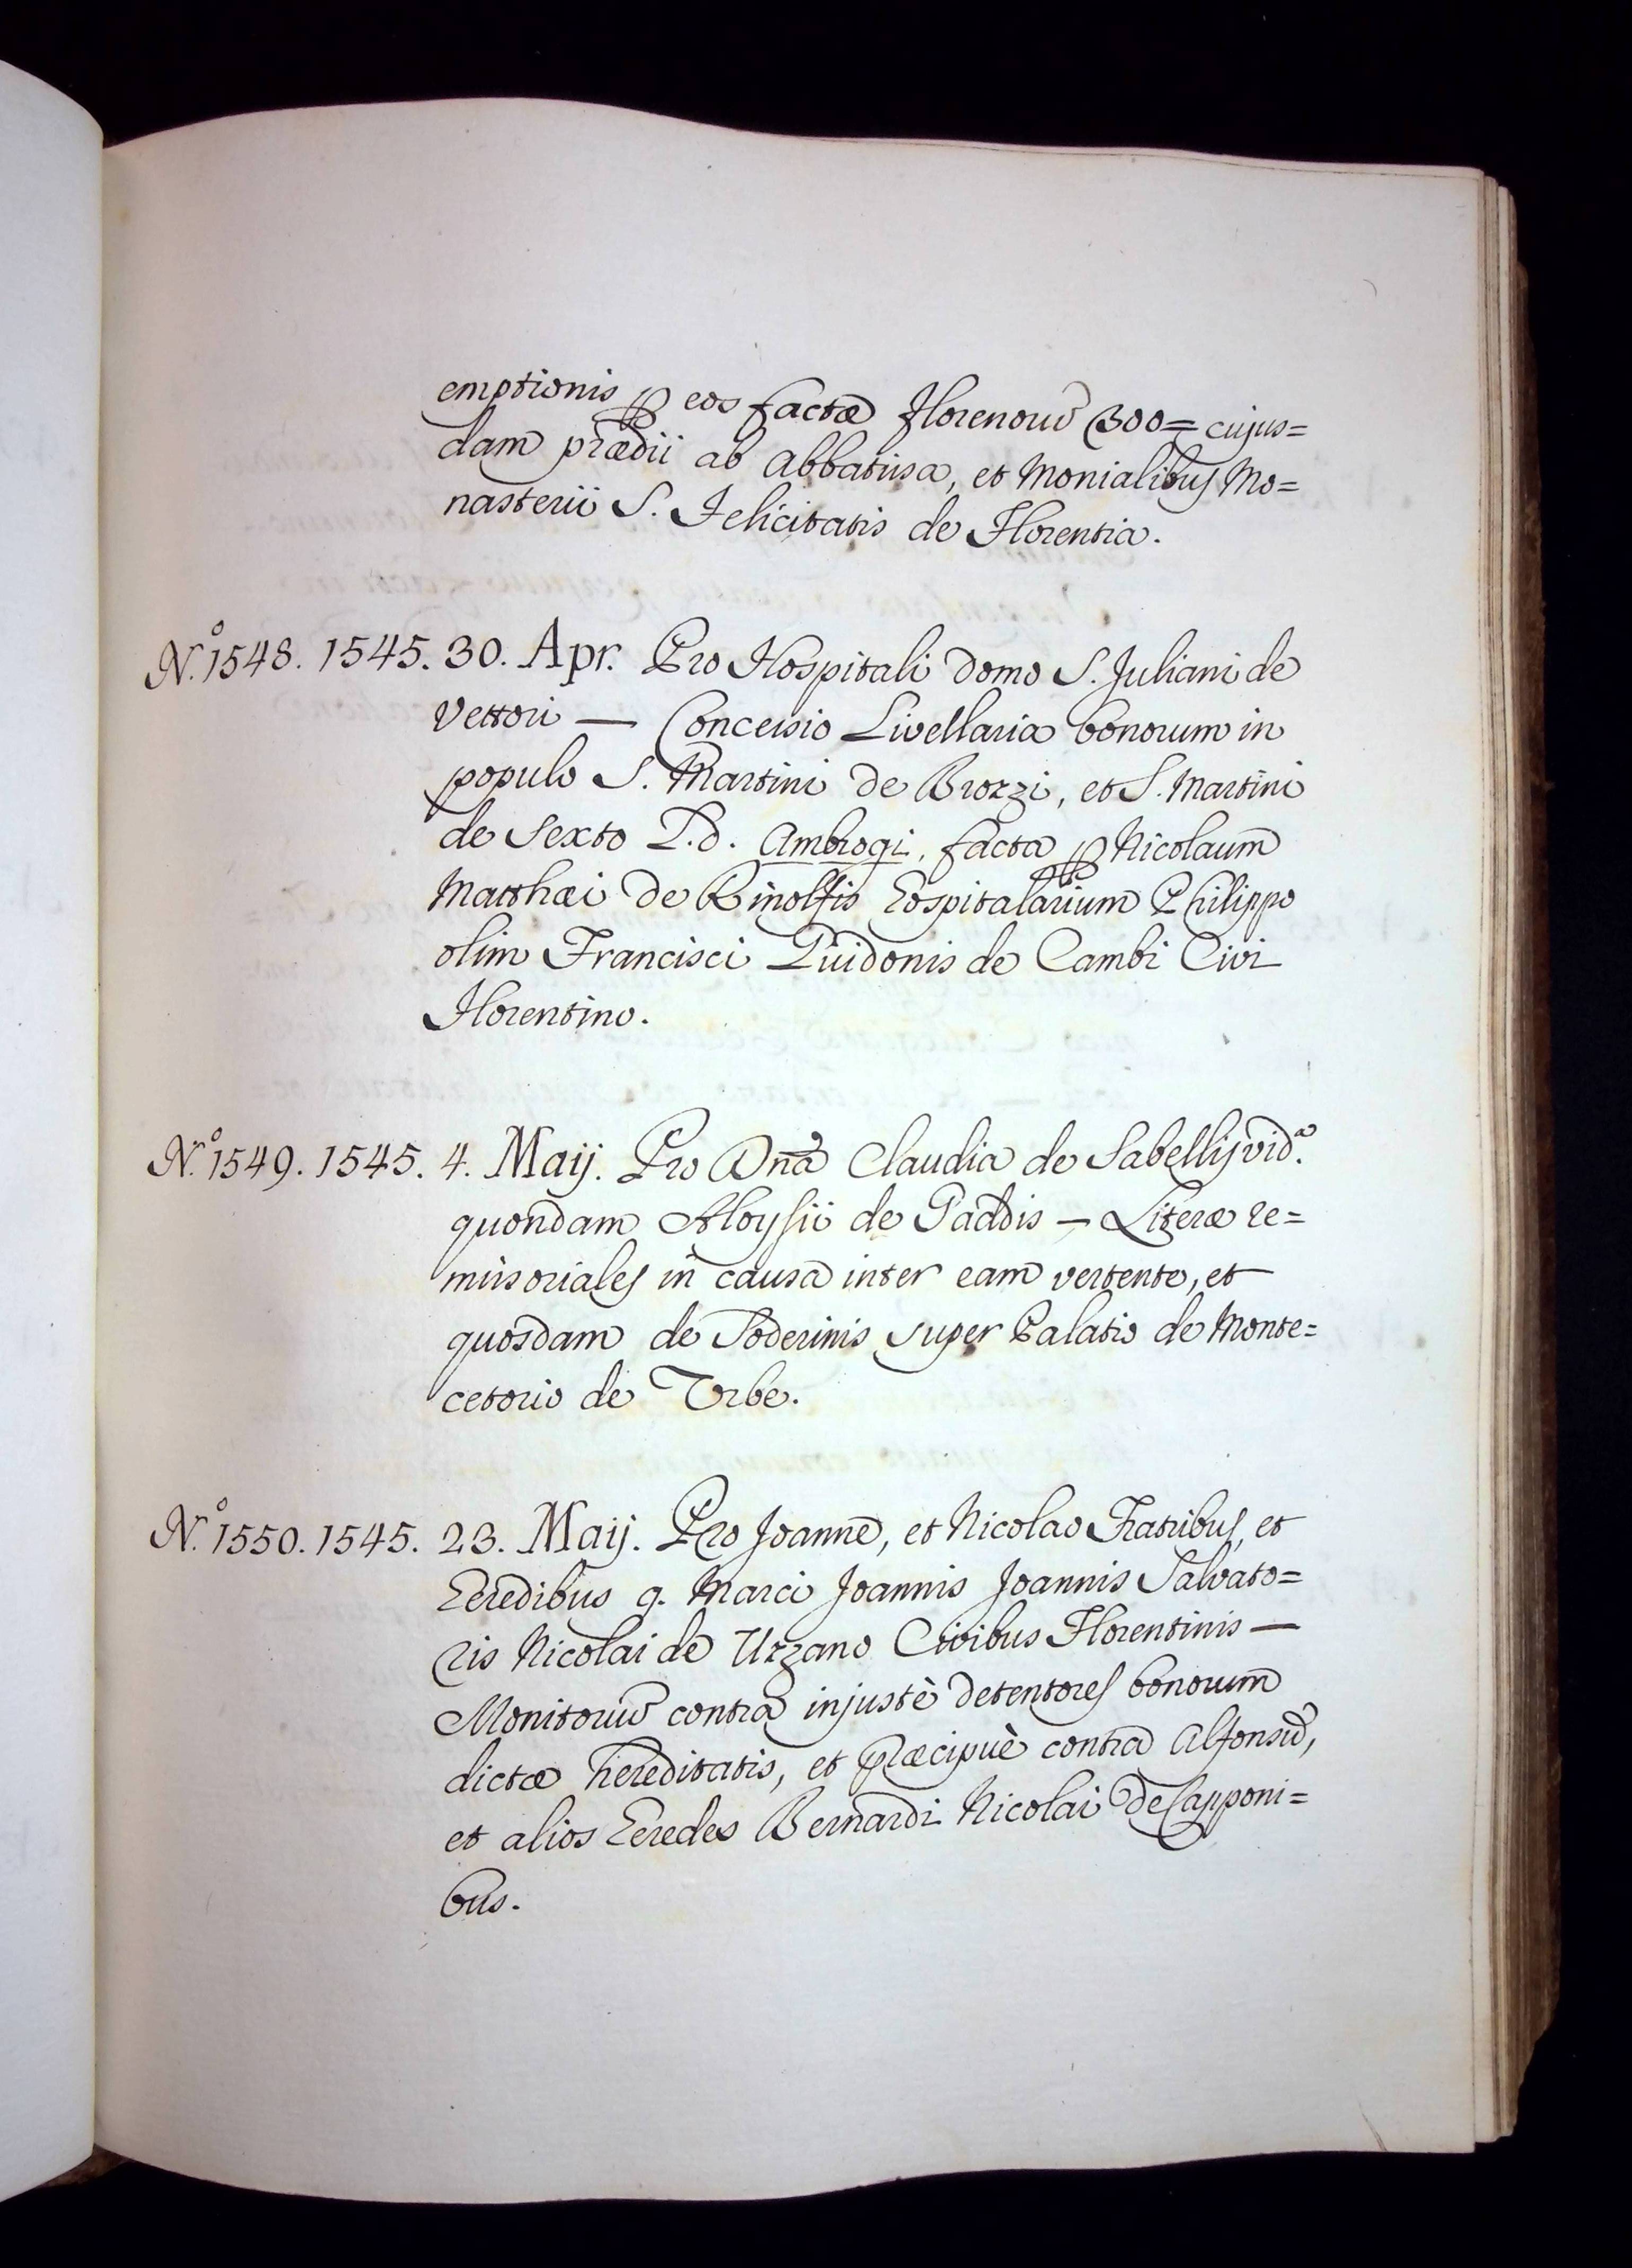 emptionis ꝑ eos factæ Florenorū 300= cujus=
dam prædii ab Abbatissa, et Monialibus Mo=
nasterii S. Felicitatis de Florentia.
N.º 1548. 1545. 30. Apr. Pro Hospitali domo S. Juliani de
Vettori — Concessio Livellaria bonorum in
populo S. Martini de Brozzi, et S. Martini
de Sexto L.d. Ambrogi, facta ꝑ Nicolaum
Matthæi de Rinolfis Hospitalarium Philippo
olim Francisci Guidonis de Cambi Civi
Florentino.
N.º 1549. 1545. 4. Maij. Pro Dnã Claudia de Sabellis vid.ª
quondam Aloysii de Gaddis — Literæ re=
missoriales in causa inter eam vertente, et
quosdam de Soderinis super Palatio de Monte=
cetorio de Urbe.
N.º 1550. 1545. 23. Maij. Pro Joanne, et Nicolao Fratribus, et
Heredibus q. Marci Joannis Joannis Salvato=
ris Nicolai de Uzzano Civibus Florentinis —
Monitoriū contra injustè detentores bonorum
dictæ hereditatis, et præcipuè contra Alfonsū,
et alios Heredes Bernardi Nicolai de Capponi=
bus.